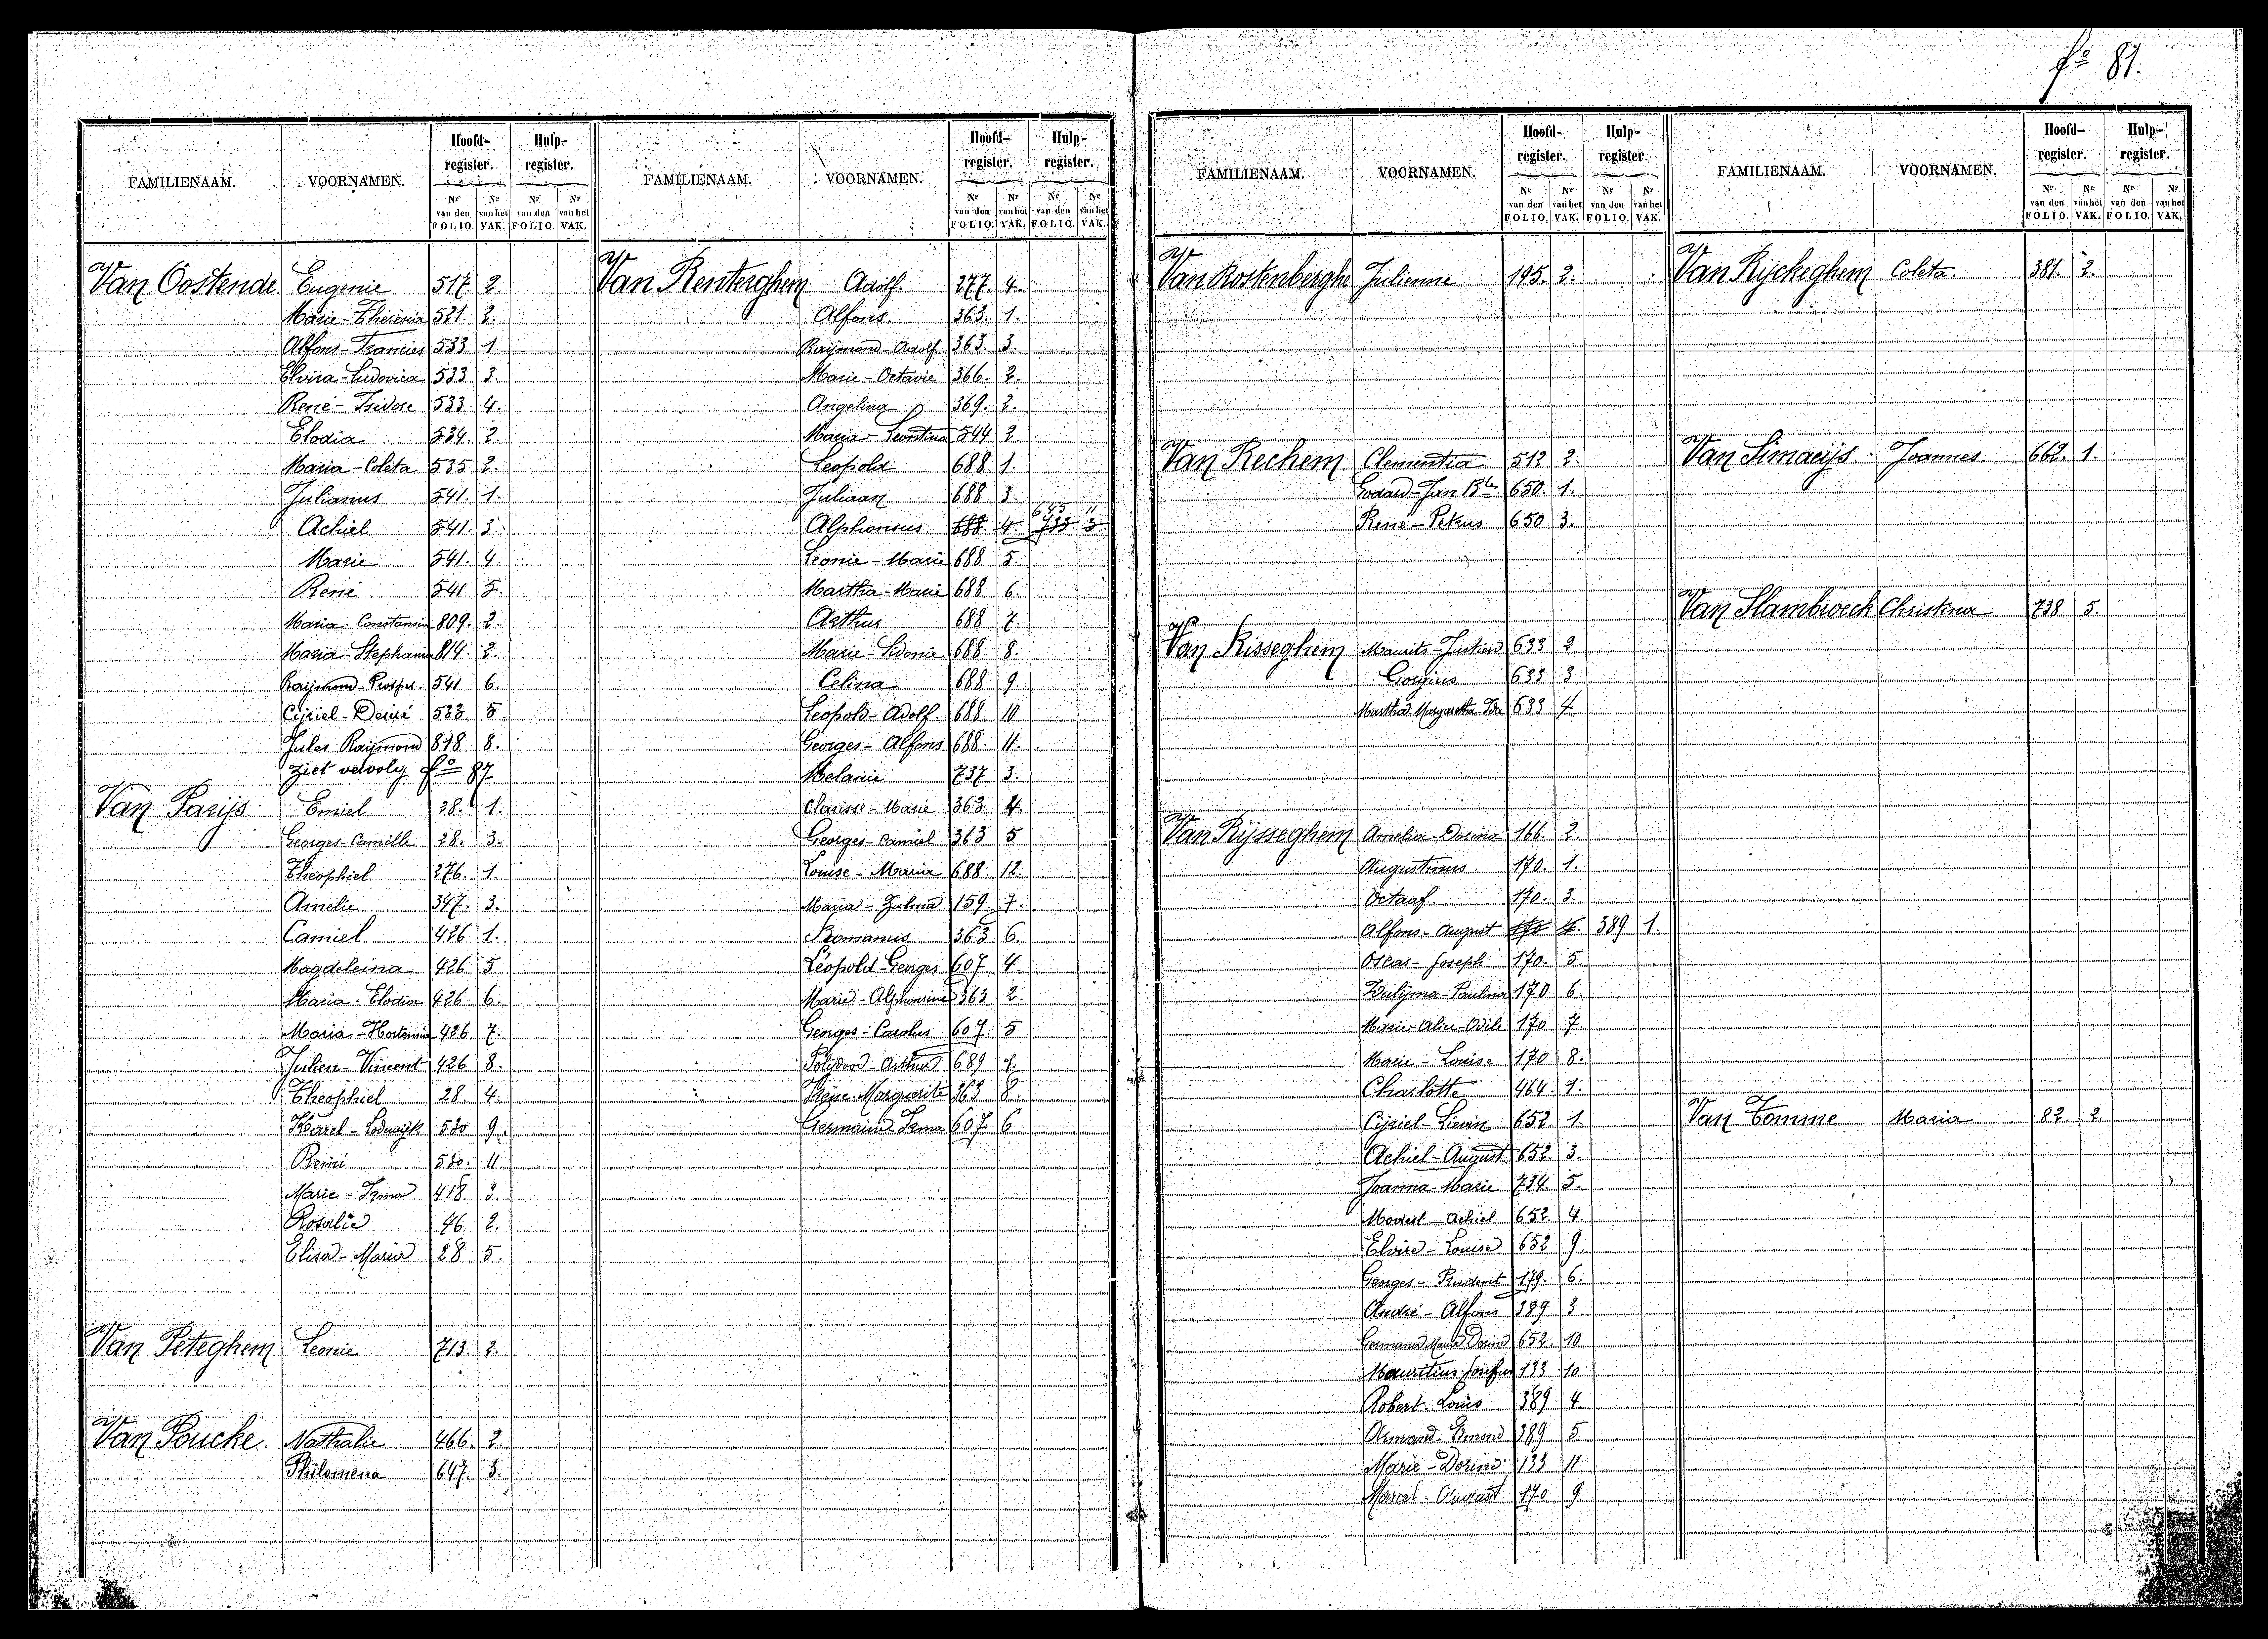 fº 81.
FAMILIENAAM. VOORNAMEN. Hoofd-register. Hulp-register.
Nr van den FOLIO. Nr van het VAK. Nr van den FOLIO. Nr van het VAK.
Van Oostende Eugenie 517. 2.
Marie-Theresia 521. 2.
Alfons-Francies 533 1.
Elvira-Ludovica 533 3.
René-Isidore 533 4.
Elodia 534. 2.
Maria-Coleta 535 2.
Julianus 541. 1.
Achiel 541. 3.
Marie 541. 4.
René 541 5.
Maria-Constansia 809. 2.
Maria-Stephania 814. 2.
Raijmond-Prosper. 541 6.
Cijriel-Desiré 533 5.
Jules Raijmond 818 8.
ziet vervolg fº 87
Van Parijs Emiel 28. 1.
Georges-Camille 28. 3.
Theophiel 276. 1.
Amelie 347. 3.
Camiel 426 1.
Magdeleina 426 5.
Maria-Elodia 426 6.
Maria-Hortensia 426 7.
Julien-Vincent 426 8.
Theophiel 28. 4.
Karel-Lodewijk 530 9.
Remi 530. 11.
Marie-Irma 418 3.
Rosalie 46 2.
Elisa-Maria 28 5.
Van Peteghem Leonie 713. 2.
Van Poucke Nathalie 466. 2.
Philomena 647. 3.
FAMILIENAAM. VOORNAMEN. Hoofd-register. Hulp-register.
Nr van den FOLIO. Nr van het VAK. Nr van den FOLIO. Nr van het VAK.
Van Renterghem Adolf. 277 4.
Alfons. 363. 1.
Raijmond-Adolf 363. 3.
Marie-Octavie 366. 2.
Angelina 369. 2.
Maria-Leontina 544 2.
Leopold 688 1.
Juliaan 688 3.
645 11
Alphonsus 688 4. 733 3
Leonie-Marie 688 5.
Martha-Marie 688 6.
Arthur 688 7.
Marie-Sidonie 688 8.
Celina 688 9.
Leopold-Adolf. 688 10
Georges-Alfons 688. 11.
Melanie 737 3.
Clarisse-Marie 363 4.
Georges-Camiel 363 5
Louise-Maria 688. 12.
Maria-Zulma 159. 7.
Romanus 363 6.
Léopold-Georges 607 4.
Marie-Alphonsine 363 2.
Georges-Carolus 607. 5
Polijdoor-Arthur 689 1.
Irène-Marguerite 363 8.
Germaine Irma 607 6
FAMILIENAAM. VOORNAMEN. Hoofd-register. Hulp-register.
Nr van den FOLIO. Nr van het VAK. Nr van den FOLIO. Nr van het VAK.
Van Rostenberghe Julienne 195. 2.
Van Rechem Clementia 512 2.
Godard-Jan Bte 650 1.
René-Petrus 650 3.
Van Risseghem Maurits-Justien 633 2
Gorgius 633 3
Martha Margaretha Ida 633 4
Van Rijsseghem Amelia-Dorina 166. 2.
Augustinus 170. 1.
Octaaf. 170. 3.
Alfons-August 170 4. 389 1.
Oscar-Joseph 170. 5
Zulijma-Paulina 170 6.
Marie-Alice-Odile 170 7.
Marie-Louise 170 8.
Charlotte 464. 1.
Cijriel-Lievin 652. 1.
Achiel-August 652. 3.
Joanna-Marie 734. 5.
Modest-Achiel 652. 4.
Elvire-Louise 652 9.
Georges-Prudent 179. 6.
André-Alfons 389 3
Germana Maria Dorina 652. 10
Mauritius Josefus 133 10
Robert Louis 389 4
Armand-Edmond 389 5
Marie-Dorina 133 11
Marcel-August 170 9.
FAMILIENAAM. VOORNAMEN. Hoofd-register. Hulp-register.
Nr van den FOLIO. Nr van het VAK. Nr van den FOLIO. Nr van het VAK.
Van Rijckeghem Coleta. 381. 2.
Van Simaeijs Joannes 662. 1.
Van Slambroeck Christina 738 5.
Van Tomme Maria 82. 2.